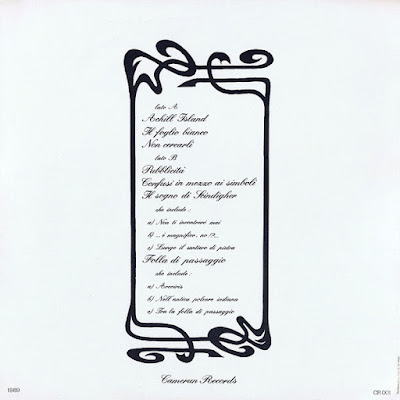 lato A:
Achill Island
Il foglio bianco
Non cercarli
lato B:
Pubblicità
Confusi in mezzo ai simboli
Il sogno di Scindigher
che include:
a) Non ti incontrerò mai
b) ... è magnifico, no ?!...
c) Lungo il sentiero di pietra
Folla di passaggio
che include:
a) Arcoiris
b) Nell'antica polvere indiana
c) Tra la folla di passaggio
Camerun Records
1989
CR 001